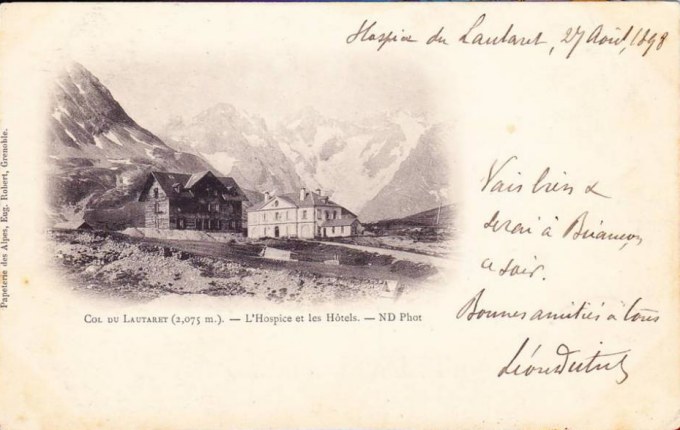 Hospice du Lautaret, 27 Août, 1898
Vais bien &
serai à Briançon
ce soir.
Bonnes amitiés à tous
Léon
COL DU LAUTARET (2,075 m.). — L'Hospice et les Hôtels. — ND Phot
Papeterie des Alpes, Eug. Robert, Grenoble.